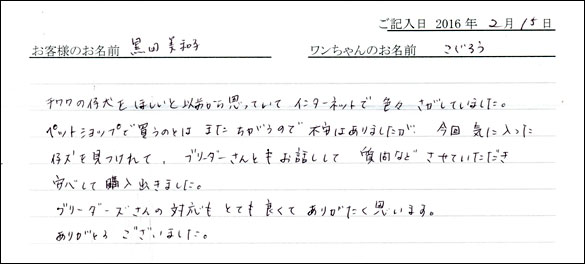 ご記入日 2016 年 2 月 15 日
お客様のお名前 黒田 美和子 ワンちゃんのお名前 こじろう
チワワの仔犬をほしいと以前から思っていて インターネットで 色々 さがしていました。
ペットショップで買うのとは また ちがうので 不安はありましたが、 今回 気に入った
仔犬を見つけれて、 ブリーダーさんともお話しして 質問など させていただき
安心して購入出きました。
ブリーダーズさんの対応も とても良くて ありがたく思います。
ありがとう ございました。